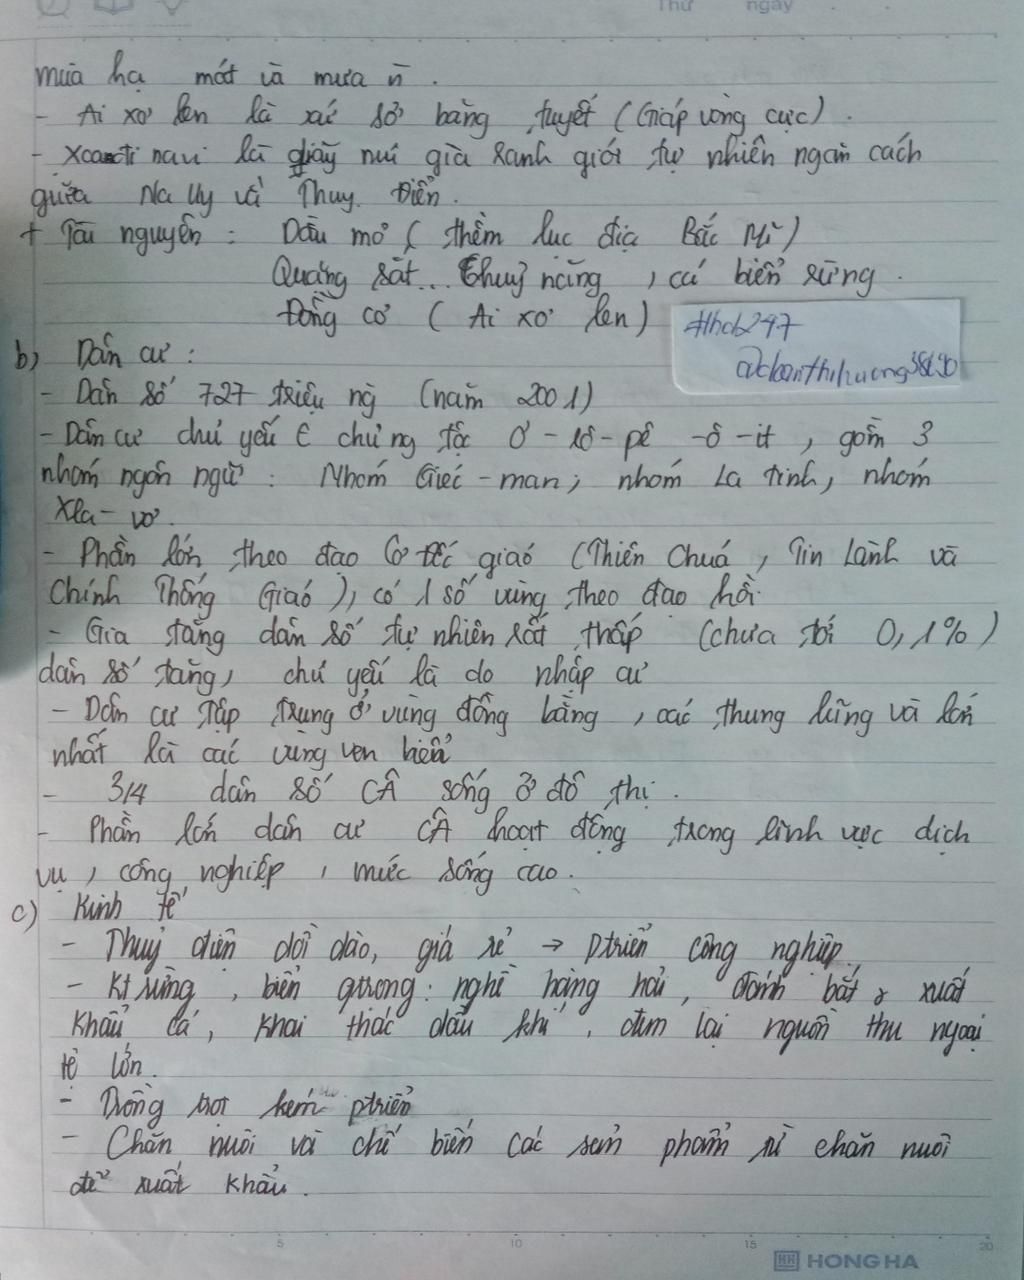 Thứ ngày
mùa hạ mát và mưa n̄.
- Ai xơ len là xứ sở băng tuyết (Giáp vòng cực).
- Xcanđinavi là dãy núi già ranh giới tự nhiên ngăn cách
giữa Na Uy và Thuỵ Điển.
+ Tài nguyên : Dầu mỏ ( thềm lục địa Bắc Mĩ)
Quặng sắt... Thuỷ năng, cá biển rừng.
Đồng cỏ ( Ai xơ len)
#hd247
b) Dân cư :
- Dân số 727 triệu ng (năm 2001)
- Dân cư chủ yếu ∈ chủng tộc Ơ - rô - pê - ô - it, gồm 3
nhóm ngôn ngữ : Nhóm Giéc - man; nhóm La tinh, nhóm
Xla - vơ.
- Phần lớn theo đạo Cơ đốc giáo (Thiên Chúa, Tin Lành và
Chính Thống Giáo), có 1 số vùng theo đạo hồi.
- Gia tăng dân số tự nhiên rất thấp (chưa tới 0,1%)
dân số tăng, chủ yếu là do nhập cư
- Dân cư tập trung ở vùng đồng bằng, các thung lũng và lớn
nhất là các vùng ven biển
- 3/4 dân số CÂ sống ở đô thị.
- Phần lớn dân cư CÂ hoạt động trong lĩnh vực dịch
vụ, công nghiệp, mức sống cao.
c) Kinh tế
- Thuỷ điện dồi dào, giá rẻ → ptriển công nghiệp.
- Kt rừng, biển qtrọng : nghề hàng hải, đánh bắt & xuất
khẩu cá, khai thác dầu khí, đem lại nguồn thu ngoại
tệ lớn.
- Trồng trọt kém ptriển
- Chăn nuôi và chế biến các sản phẩm từ chăn nuôi
để xuất khẩu.
5 10 15 20
HH HONG HA